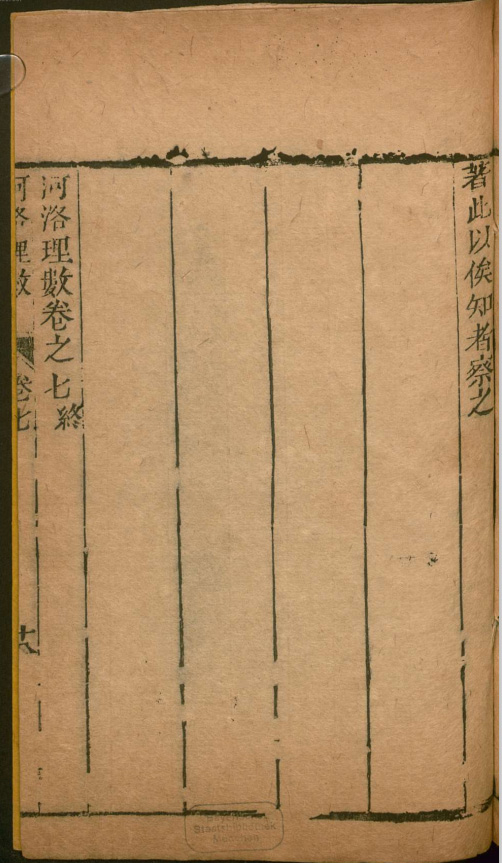 著此以俟知者察之
河洛理數卷之七終
河洛理數 卷七
十六
Staatsbibliothek
München